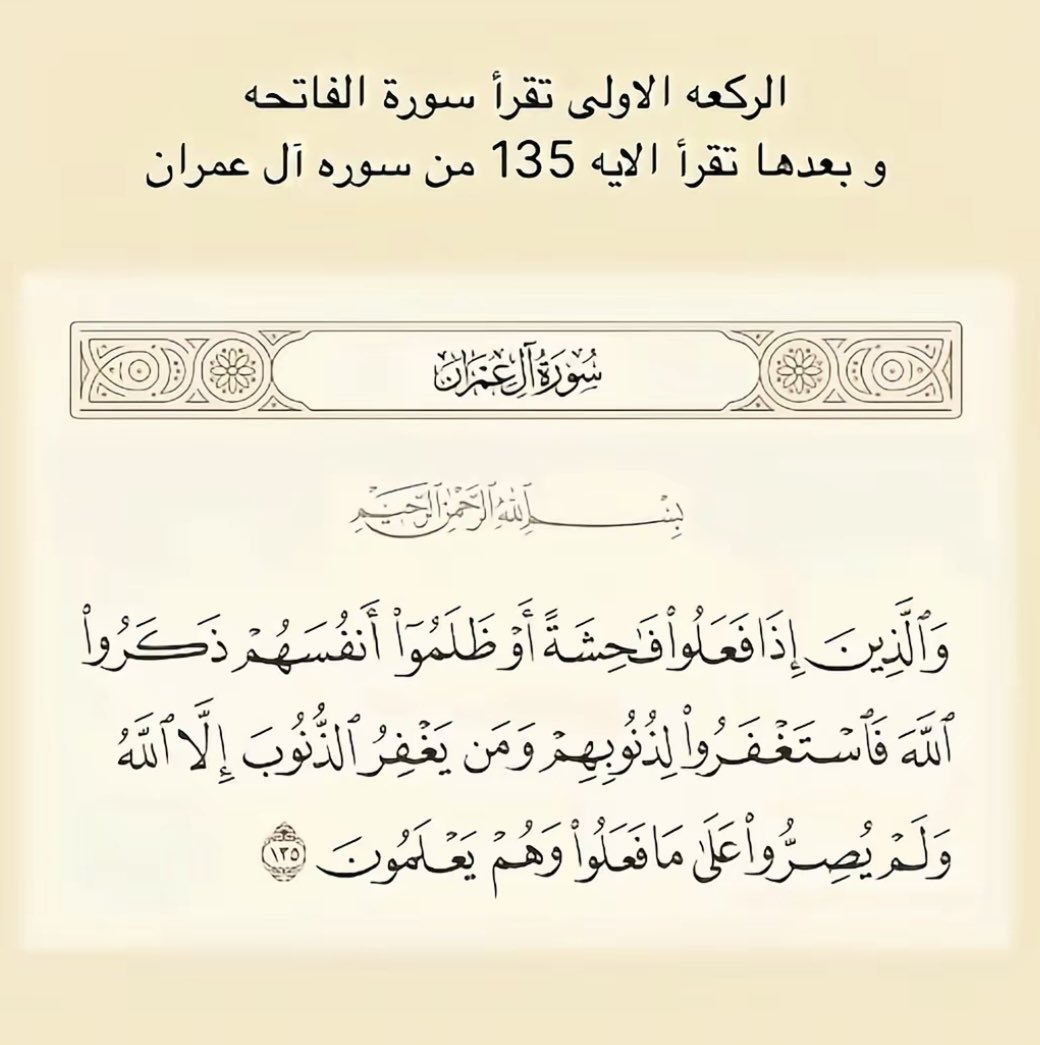 الركعه الاولى تقرأ سورة الفاتحه
و بعدها تقرأ الايه 135 من سوره آل عمران
سُورَةُ آلِ عِمْرَان
بِسْمِ ٱللَّهِ ٱلرَّحْمَٰنِ ٱلرَّحِيمِ
وَٱلَّذِينَ إِذَا فَعَلُوا۟ فَٰحِشَةً أَوْ ظَلَمُوٓا۟ أَنفُسَهُمْ ذَكَرُوا۟
ٱللَّهَ فَٱسْتَغْفَرُوا۟ لِذُنُوبِهِمْ وَمَن يَغْفِرُ ٱلذُّنُوبَ إِلَّا ٱللَّهُ
وَلَمْ يُصِرُّوا۟ عَلَىٰ مَا فَعَلُوا۟ وَهُمْ يَعْلَمُونَ ١٣٥